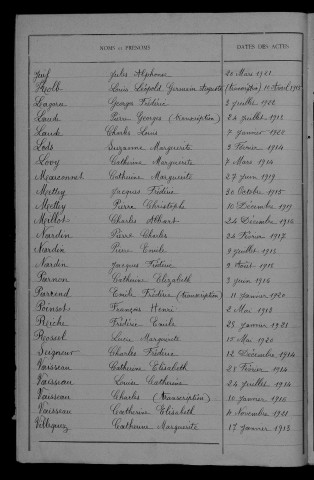 NOMS ET PRÉNOMS DATES DES ACTES
Jules Alphonse 20 Mars 1921
Kolb Louis Léopold Germain Auguste (Transcription) 11 Avril 1915
Lagarce Georges Frédéric 3 Juillet 1922
Laude Pierre Georges (transcription) 24 Juillet 1918
Laude Charles Louis 7 Janvier 1920
Lods Suzanne Marguerite 3 Février 1914
Lovy Catherine Marguerite 7 Mars 1914
Maiconnet Catherine Marguerite 27 Juin 1919
Mettey Jacques Frédéric 30 Octobre 1915
Mettey Pierre Christophe 10 Décembre 1919
Meillot Charles Albert 24 Décembre 1914
Nardin Pierre Charles 24 Février 1917
Nardin Pierre Emile 9 Juillet 1915
Nardin Jacques Frédéric 9 Août 1918
Parnon Catherine Elizabeth 3 Juin 1914
Parrend Emile Frédéric (transcription) 11 Janvier 1920
Poinsot François Henri 2 Mai 1913
Reiche Frédéric Emile 25 Janvier 1921
Rossel Lucie Marguerite 15 Mai 1920
Seigneur Charles Frédéric 12 Décembre 1914
Vaisseau Catherine Elisabeth 25 Février 1914
Vaisseau Louise Catherine 24 Juillet 1914
Vaisseau Charles (Transcription) 10 Janvier 1916
Vaisseau Catherine Elisabeth 4 Novembre 1921
Catherine Marguerite 17 Janvier 1913